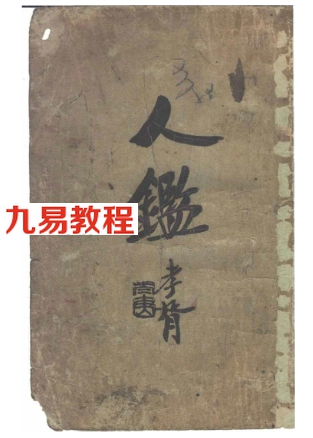 人鑑
九易教程
孝胥